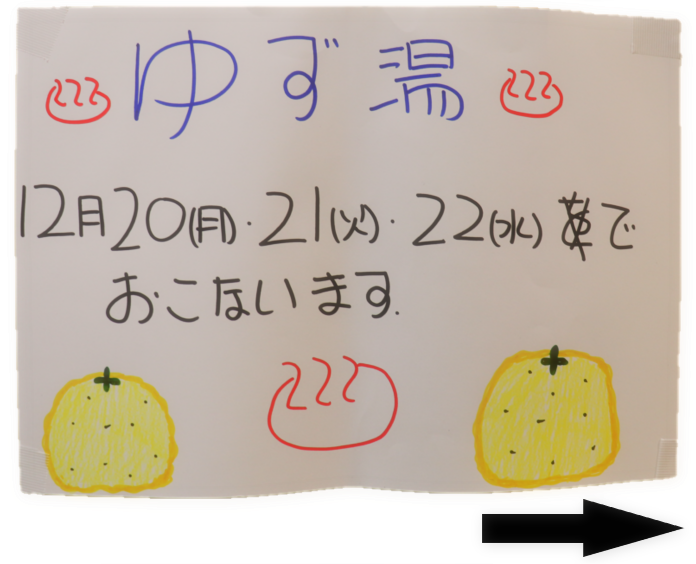 ゆず湯
12月20(月)・21(火)・22(水)で
おこないます.